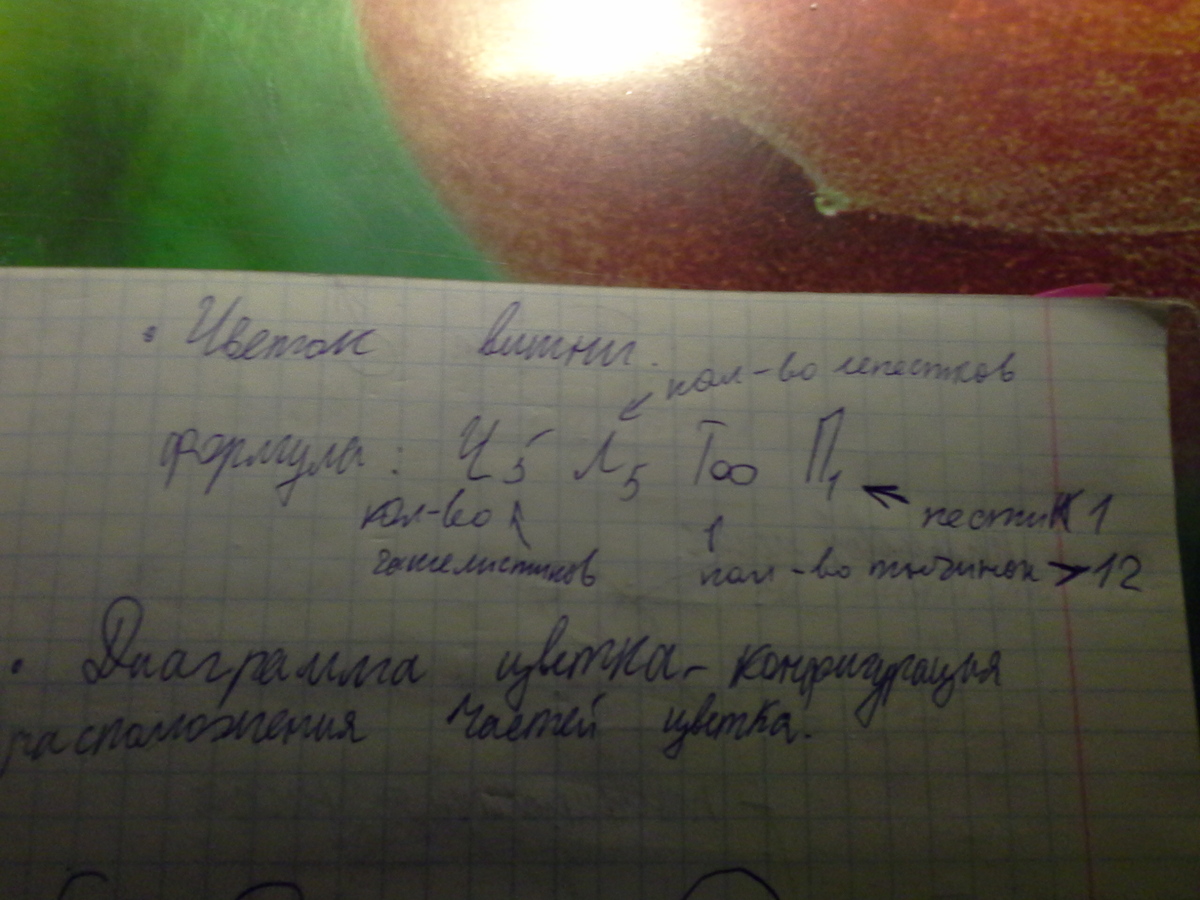 • Цветок вишни.
кол-во лепестков
формула: Ч5 Л5 Т∞ П1
кол-во пестик 1
чашелистиков кол-во тычинок > 12
• Диаграмма цветка - конфигурация
расположения частей цветка.